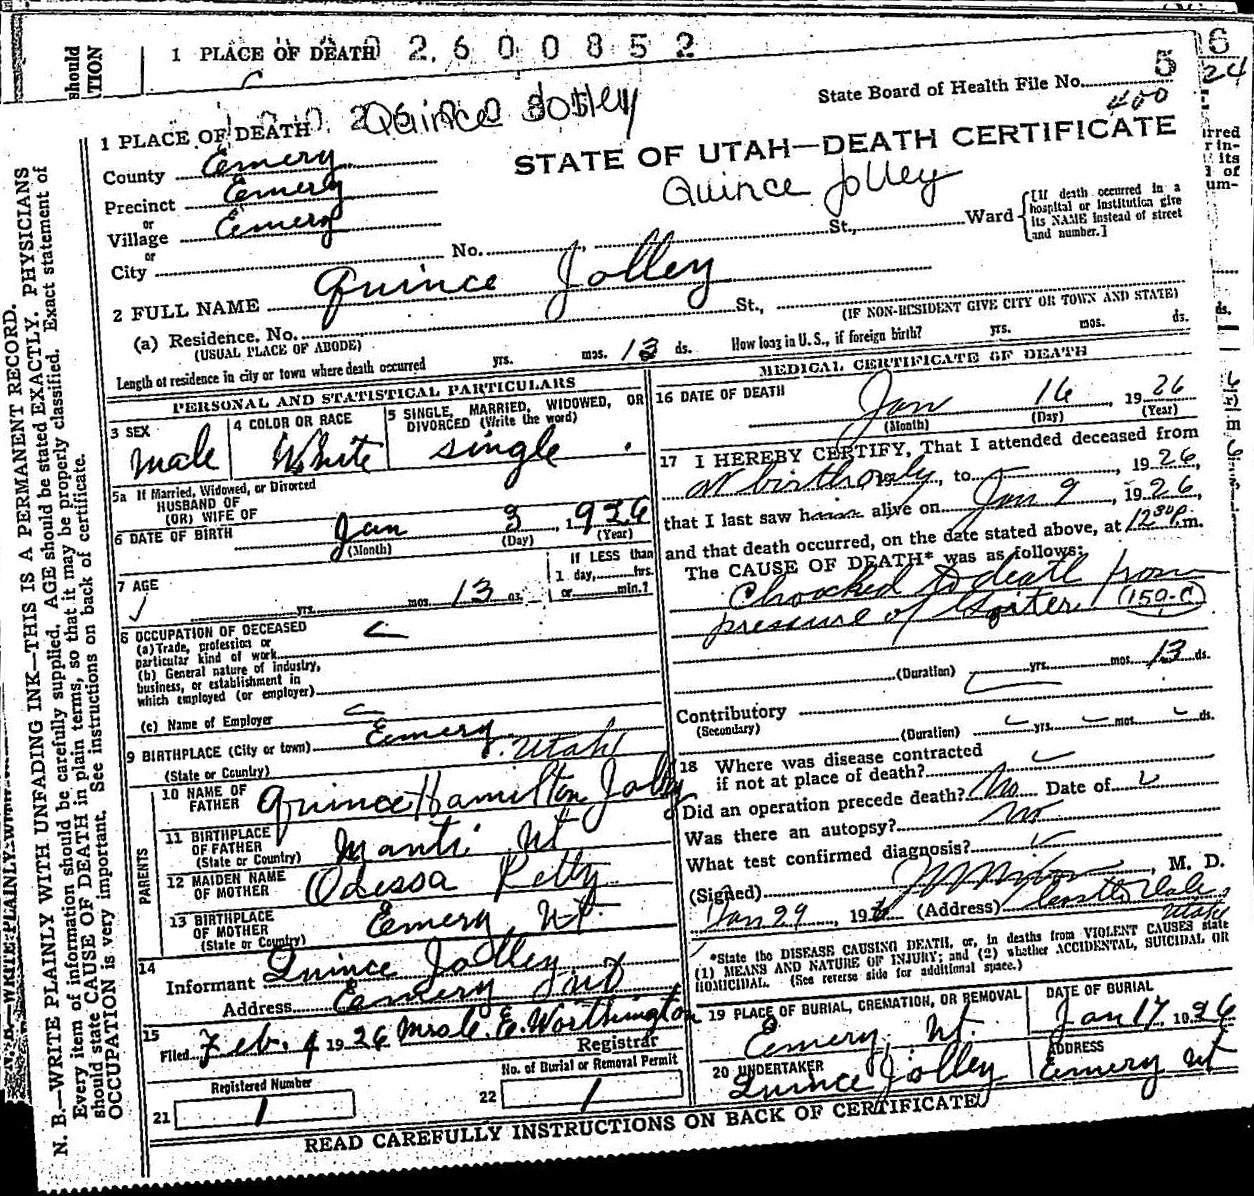 1 PLACE OF DEATH 2 6 0 0 8 5 2
Quince Jolley
State Board of Health File No. 5
400
1 PLACE OF DEATH
STATE OF UTAH—DEATH CERTIFICATE
Quince Jolley
County Emery
Precinct Emery
or
Village Emery
or
City No. St., Ward
[If death occurred in a hospital or institution give its NAME instead of street and number.]
2 FULL NAME Quince Jolley
(a) Residence. No. St.,
(USUAL PLACE OF ABODE) (IF NON-RESIDENT GIVE CITY OR TOWN AND STATE)
Length of residence in city or town where death occurred yrs. mos. 13 ds. How long in U. S., if foreign birth? yrs. mos. ds.
PERSONAL AND STATISTICAL PARTICULARS
3 SEX
male
4 COLOR OR RACE
White
5 SINGLE, MARRIED, WIDOWED, OR DIVORCED (Write the word)
single
5a If Married, Widowed, or Divorced
HUSBAND OF
(OR) WIFE OF
6 DATE OF BIRTH Jan 3, 1926
(Month) (Day) (Year)
7 AGE yrs. mos. 13 ds.
If LESS than
1 day, hrs.
or min.?
8 OCCUPATION OF DECEASED
(a) Trade, profession or
particular kind of work
(b) General nature of industry,
business, or establishment in
which employed (or employer)
(c) Name of Employer
9 BIRTHPLACE (City or town) Emery, Utah
(State or Country)
PARENTS
10 NAME OF FATHER Quince Hamilton Jolley
11 BIRTHPLACE OF FATHER Manti Ut
(State or Country)
12 MAIDEN NAME OF MOTHER Odessa Petty
13 BIRTHPLACE OF MOTHER Emery, Ut
(State or Country)
14
Informant Quince Jolley
Address Emery Ut
15
Filed Feb. 4 1926 Mrs C. E. Worthington
Registrar
Registered Number
21 1
No. of Burial or Removal Permit
22 1
MEDICAL CERTIFICATE OF DEATH
16 DATE OF DEATH Jan 16, 1926
(Month) (Day) (Year)
17 I HEREBY CERTIFY, That I attended deceased from
at birth only, to , 1926,
that I last saw h alive on Jan 9, 1926,
and that death occurred, on the date stated above, at 12 30 P. m.
The CAUSE OF DEATH* was as follows:
Chocked to death from
pressure of Goiter (159-C)
(Duration) yrs. mos. 13 ds.
Contributory
(Secondary)
(Duration) yrs. mos. ds.
18 Where was disease contracted
if not at place of death?
Did an operation precede death? No Date of
Was there an autopsy? no
What test confirmed diagnosis?
(Signed) , M. D.
Jan 29, 192 (Address) Castle Dale, Utah
*State the DISEASE CAUSING DEATH, or, in deaths from VIOLENT CAUSES state
(1) MEANS AND NATURE OF INJURY; and (2) whether ACCIDENTAL, SUICIDAL OR
HOMICIDAL. (See reverse side for additional space.)
19 PLACE OF BURIAL, CREMATION, OR REMOVAL
Emery, Ut.
DATE OF BURIAL
Jan 17, 1926
20 UNDERTAKER
Quince Jolley
ADDRESS
Emery Ut
READ CAREFULLY INSTRUCTIONS ON BACK OF CERTIFICATE
N. B.—WRITE PLAINLY WITH UNFADING INK—THIS IS A PERMANENT RECORD.
Every item of information should be carefully supplied. AGE should be stated EXACTLY. PHYSICIANS
should state CAUSE OF DEATH in plain terms, so that it may be properly classified. Exact statement of
OCCUPATION is very important. See instructions on back of certificate.